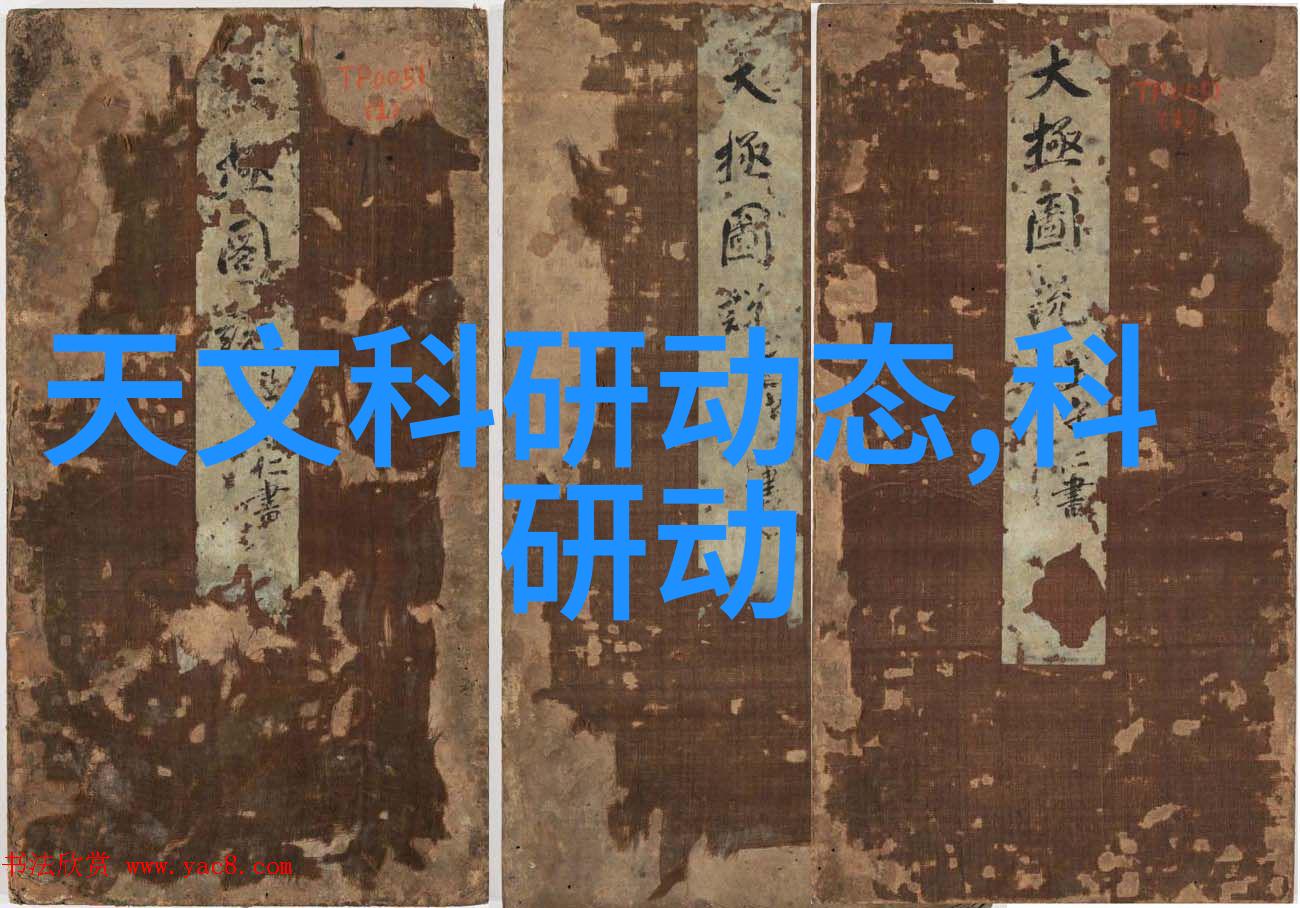 TP0051
(1)
極圖
仁書
大極圖說
書
大極圖说
仁書
天文科研动态,科
研动
书法欣赏 www.yac8.com